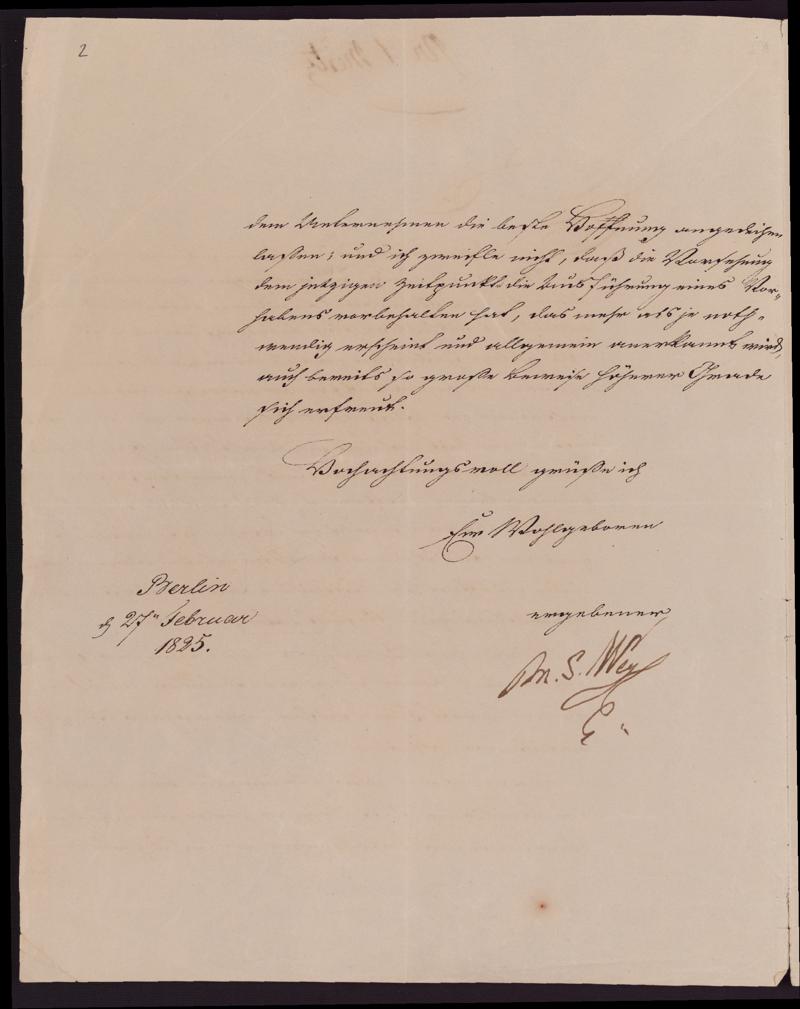 2
dem Unternehmen die beste Hoffnung angedeihen
lassen; und ich zweifle nicht, daß die Vorsehung
dem jetzigen Zeitpunkt die Ausführung eines Vor-
habens vorbehalten hat, das mehr als je noth-
wendig erscheint und allgemein anerkannt wird,
auch bereits so große Beweise höherer Gnade
sich erfreut.
Hochachtungsvoll grüße ich
Euer Wohlgeboren
Berlin
d 27n Februar
1825.
ergebener
M. S. Weyl